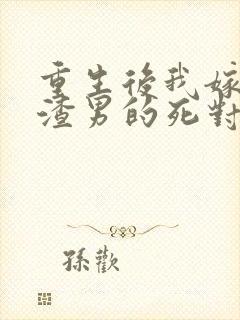 重生後我嫁
渣男的死對
孫歡